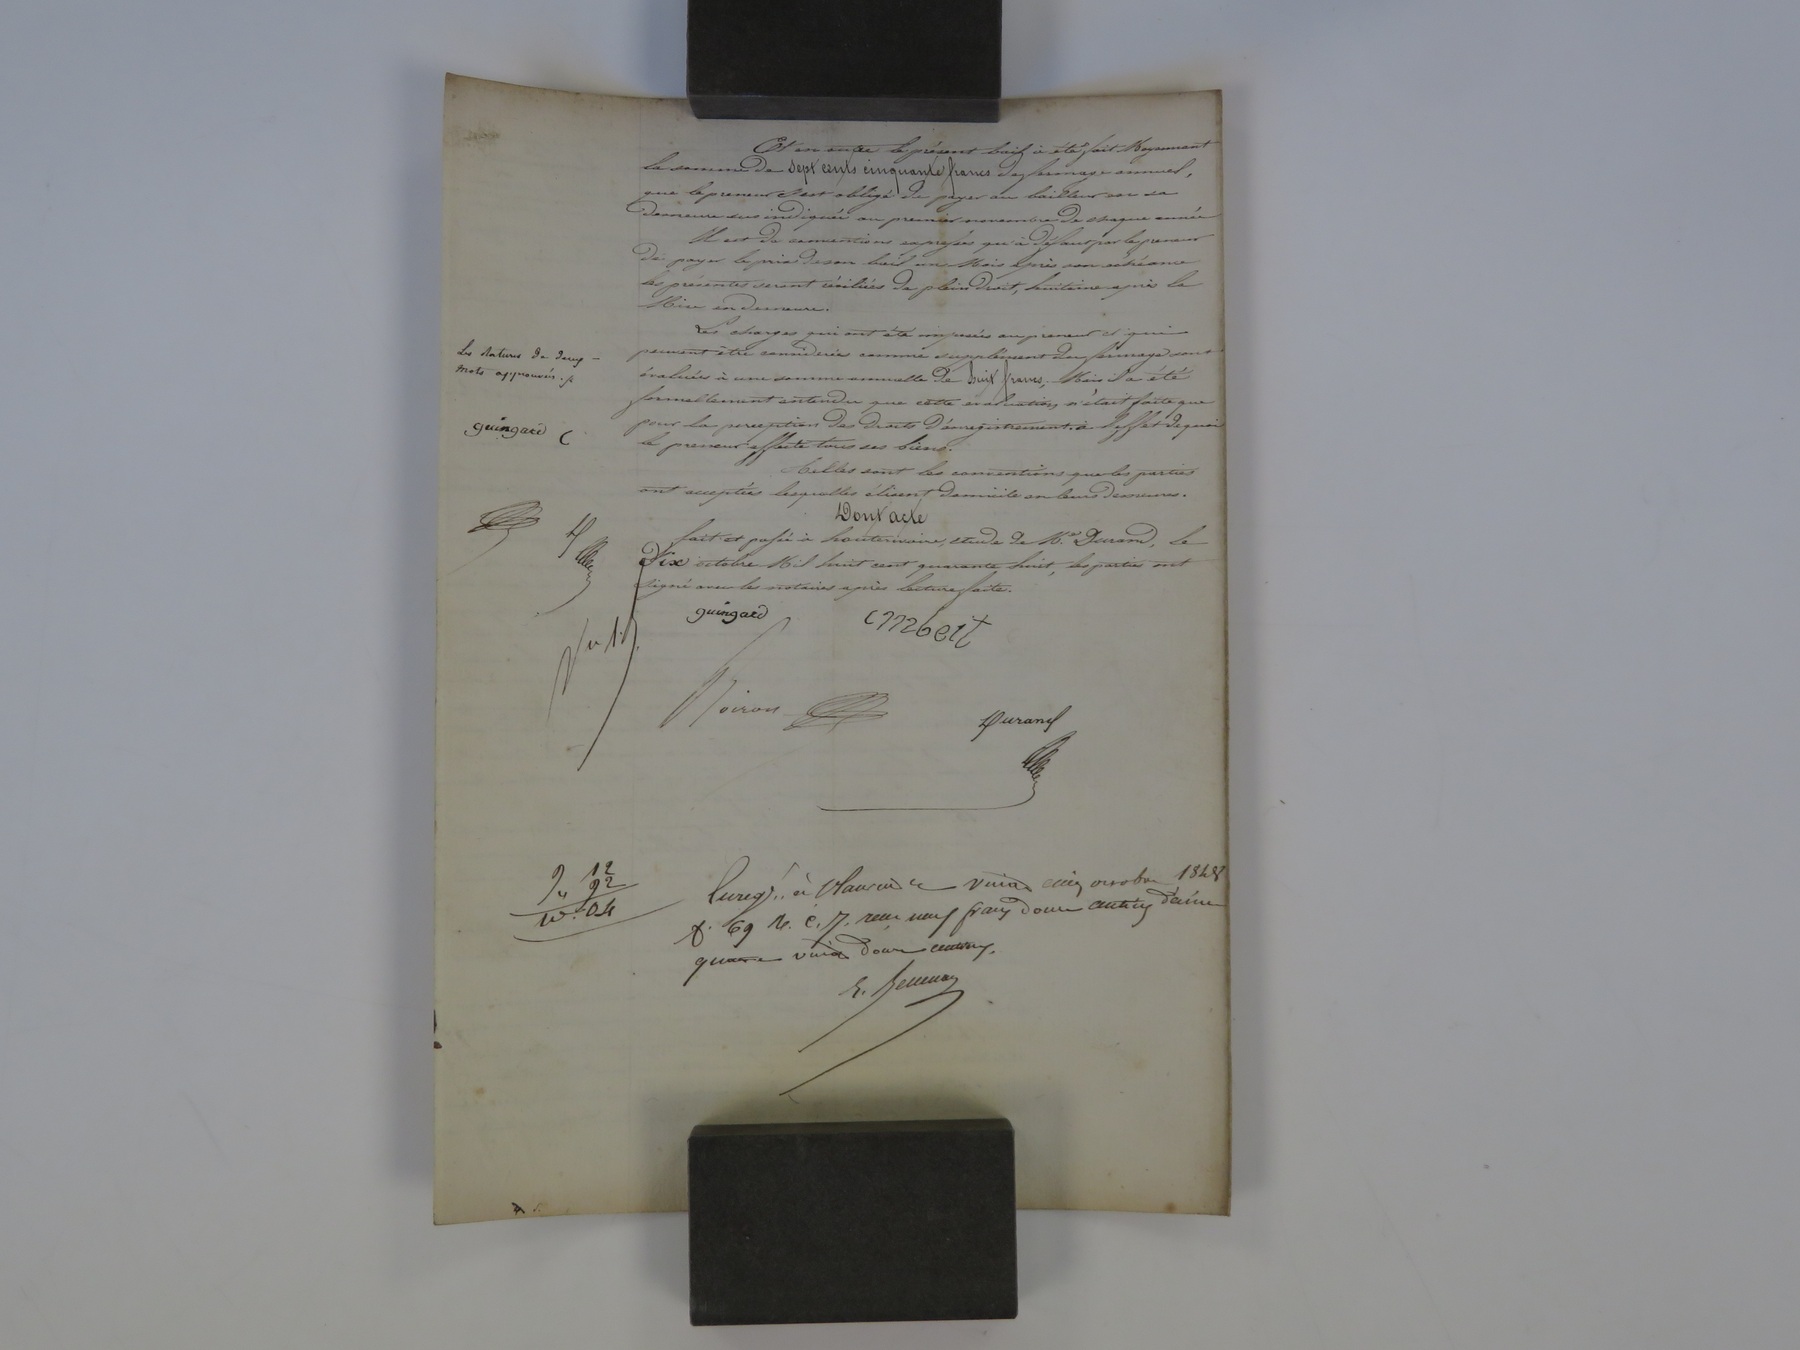 Et en outre le présent bail a été fait Moyennant
la somme de sept cents cinquante francs de fermage annuel,
que le preneur s'est obligé de payer au bailleur en sa
demeure sus indiquée au premier novembre de chaque année
Il est de conventions expresses qu'à défaut par le preneur
de payer le prix de son bail un Mois après son échéance
les présentes seront résiliées de plein droit, huitaine après la
Mise en demeure.
Les charges qui ont été imposées au preneur et qui
peuvent être considérées comme supplément du fermage sont
évaluées à une somme annuelle de huit francs, Mais il a été
formellement entendu que cette évaluation n'était faite que
pour la perception des droits d'enregistrement. à l'effet de quoi
le preneur affecte tous ses biens.
Telles sont les conventions que les parties
ont acceptées lesquelles élisent domicile en leurs demeures.
Dont acte
fait et passé à étude de Me Durand, le
Dix octobre Mil huit cent quarante huit, les parties ont
signé avec les notaires après lecture faite.
Les ratures de deux
mots approuvées
guingard
guingard imbert
Noiron Durand
9, 12
92
10. 04
Enregé. à vingt cinq octobre 1848
fo. 69 Ro. C. 7. reçu neuf francs douze centimes décime
quatre vingt douze centimes.